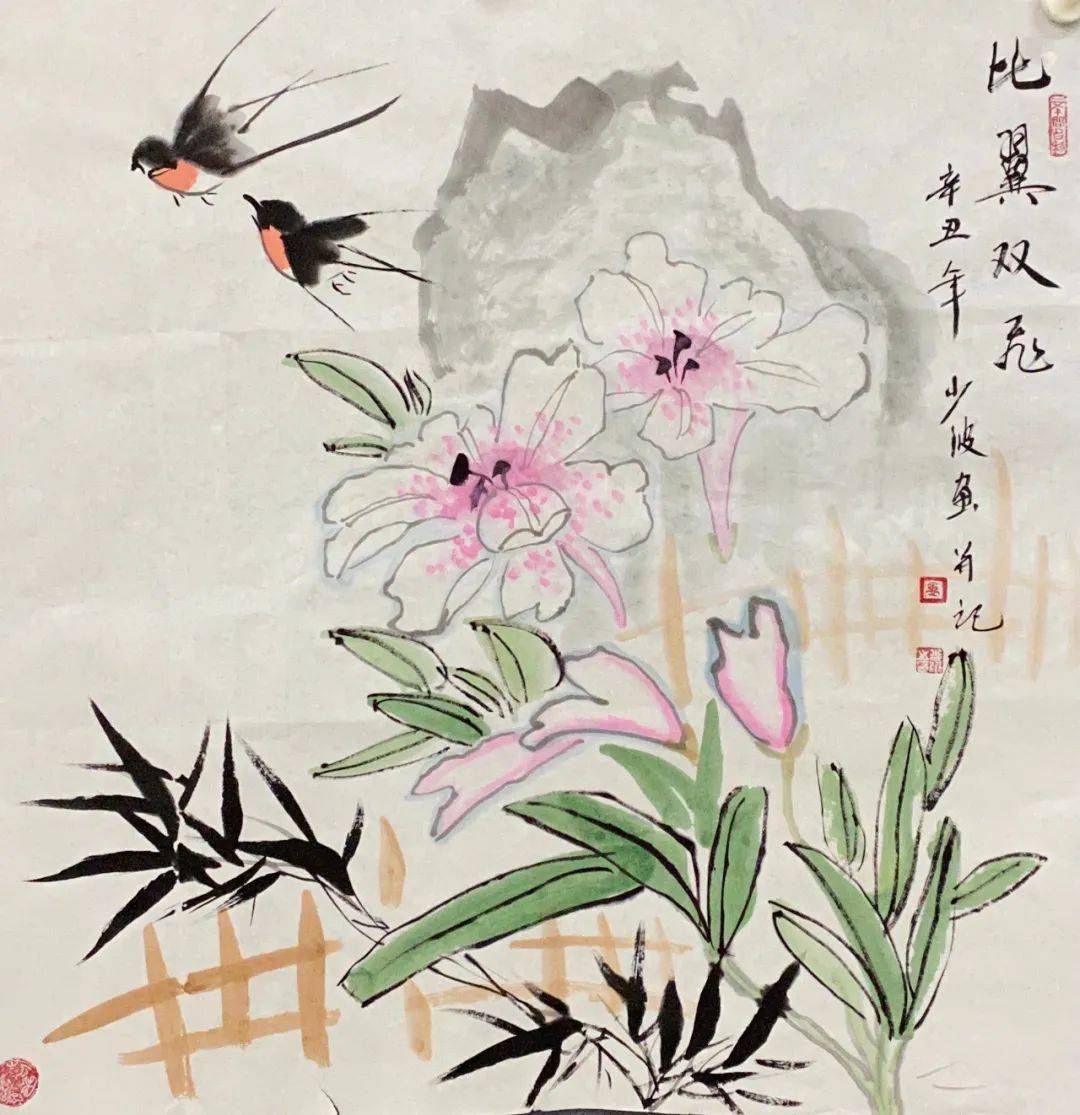 比翼双飛
辛丑年 少波画并记